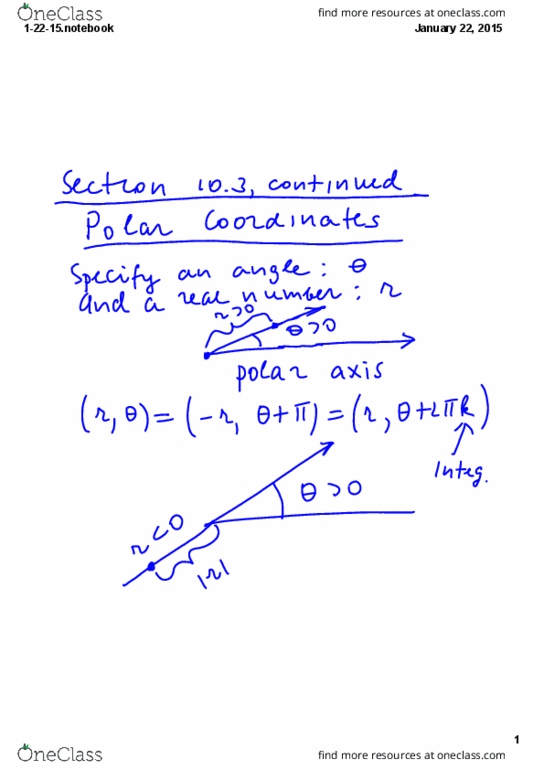 OneClass
find more resources at oneclass.com
1-22-15.notebook
January 22, 2015
Section 10.3, continued
Polar Coordinates
Specify an angle: θ
and a real number: r
r>0
θ>0
polar axis
(r, θ) = (-r, θ+π) = (r, θ+2πk)
Integ.
θ>0
r<0
|r|
1
OneClass
find more resources at oneclass.com